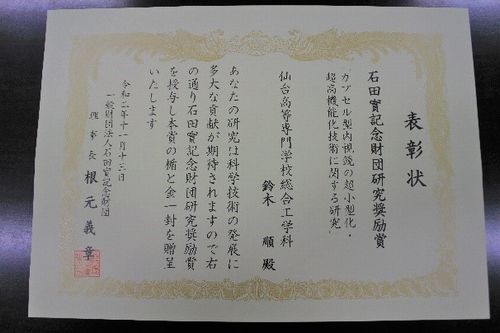 表彰状
石田實記念財団研究奨励賞
「カプセル型内視鏡の超小型化・
超高機能化技術に関する研究」
仙台高等専門学校総合工学科
鈴木 順 殿
あなたの研究は科学技術の発展に
多大な貢献が期待されますので右
の通り石田實記念財団研究奨励賞
を授与し本賞の楯と金一封を贈呈
いたします
令和二年十一月十三日
一般財団法人石田實記念財団
理事長 根元義章